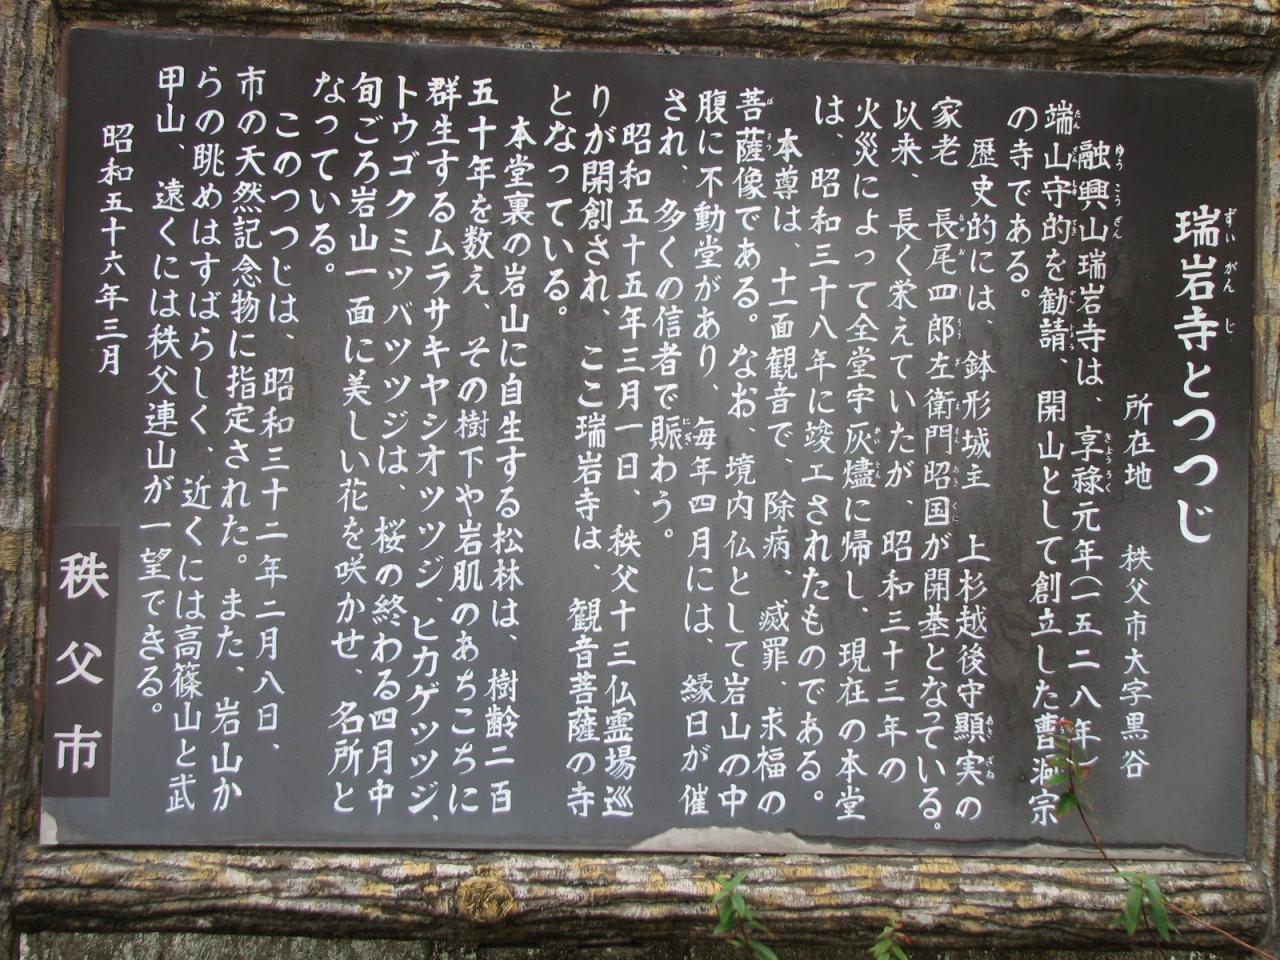 瑞岩寺とつつじ
所在地　秩父市大字黒谷
融興山瑞岩寺は、享禄元年(一五二八年)
端山守的を勧請、開山として創立した曹洞宗
の寺である。
歴史的には、鉢形城主　上杉越後守顕実の
家老　長尾四郎左衛門昭国が開基となっている。
以来、長く栄えていたが、昭和三十三年の
火災によって全堂宇灰燼に帰し、現在の本堂
は、昭和三十八年に竣工されたものである。
本尊は、十一面観音で、除病、滅罪、求福の
菩薩像である。なお、境内仏として岩山の中
腹に不動堂があり、毎年四月には、縁日が催
され、多くの信者で賑わう。
昭和五十五年三月一日、秩父十三仏霊場巡
りが開創され、ここ瑞岩寺は、観音菩薩の寺
となっている。
本堂裏の岩山に自生する松林は、樹齢二百
五十年を数え、その樹下や岩肌のあちこちに
群生するムラサキヤシオツツジ、ヒカゲツツジ、
トウゴクミツバツツジは、桜の終わる四月中
旬ごろ岩山一面に美しい花を咲かせ、名所と
なっている。
このつつじは、昭和三十二年二月八日、
市の天然記念物に指定された。また、岩山か
らの眺めはすばらしく、近くには高篠山と武
甲山、遠くには秩父連山が一望できる。
昭和五十六年三月
秩父市